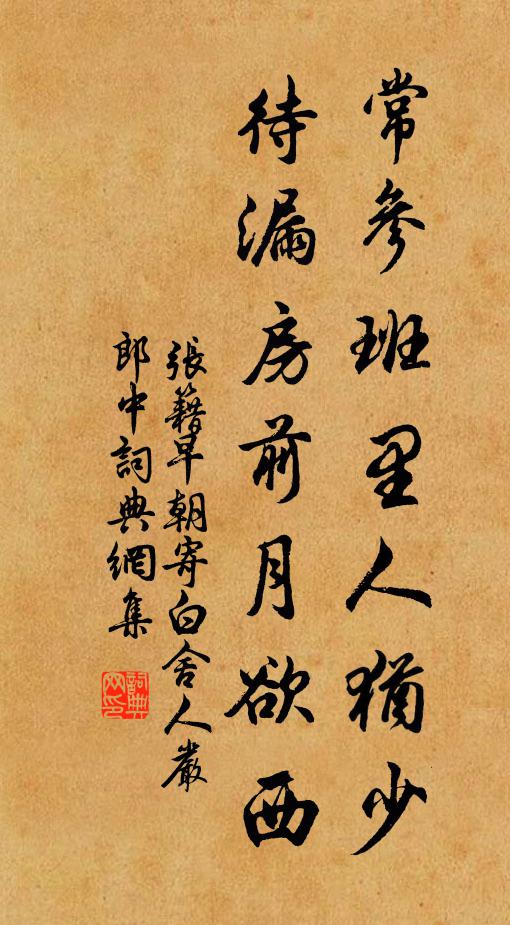 常參班里人猶少
待漏房前月欲西
張籍早朝寄白舍人嚴
郎中詞典網集
詞典网印